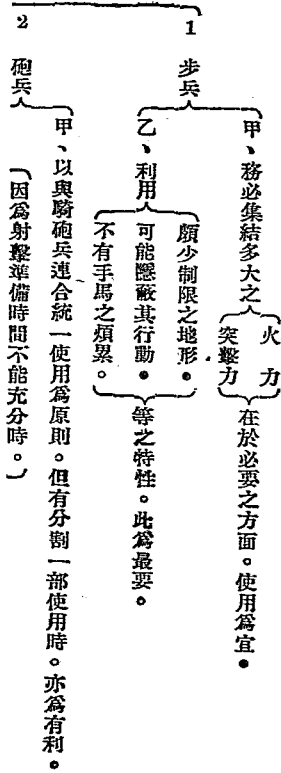 1 步兵
甲、務必集結多大之
火力
突擊力
在於必要之方面。使用爲宜。
乙、利用
頗少制限之地形。
可能隱蔽其行動。
不有手馬之煩累。
等之特性。此爲最要。
2 砲兵
甲、以與騎砲兵連合統一使用爲原則。但有分割一部使用時。亦爲有利。
（因爲射擊準備時間不能充分時。）